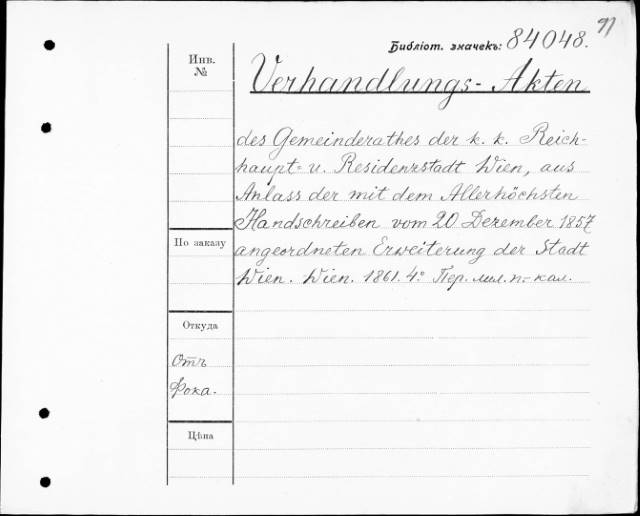 97
Библіот. значекъ: 84048.
Инв.
№
Verhandlungs-Akten
des Gemeinderathes der k. k. Reich-
haupt- u. Residenzstadt Wien, aus
Anlass der mit dem Allerhöchsten
Handschreiben vom 20 Dezember 1857
По заказу
angeordneten Erweiterung der Stadt
Wien. Wien. 1861. 4º Пер. мил. п.- кал.
Откуда
Отъ
Фока.
Цѣна